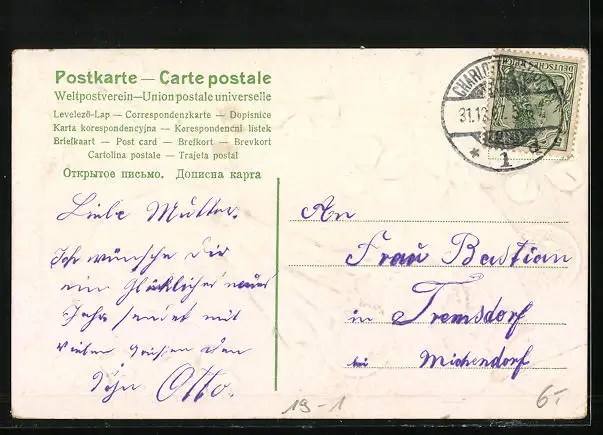 Postkarte — Carte postale
Weltpostverein — Union postale universelle
Levelező-Lap — Correspondenzkarte — Dopisnice
Karta korespondencyjna — Korespondencni listek
Briefkaart — Post card — Brefkort — Brevkort
Cartolina postale — Trajeta postal
Открытое письмо. Дописна карта
DEUTSCHES REICH
31.12.07.
* 1
Liebe Mutter.
Ich wünsche Dir
ein Glückliches neues
Jahr sendet mit
vielen Grüssen Dein
Sohn Otto.
An
Frau Bastian
in Tremsdorf
bei Michendorf
19-1
6.-